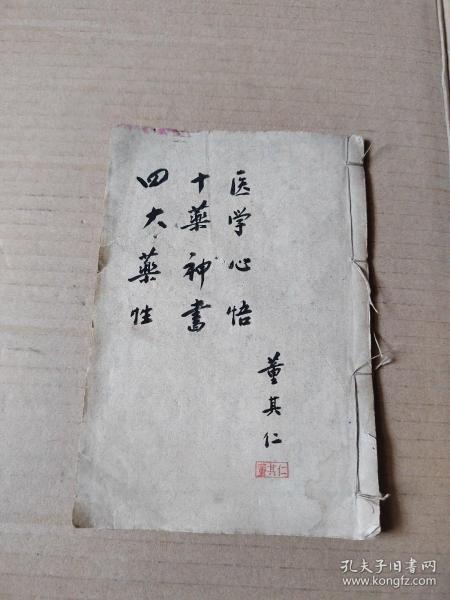 医学心悟
十藥神書
四大藥性
董其仁
董其仁
孔夫子旧书网
www.kongfz.com